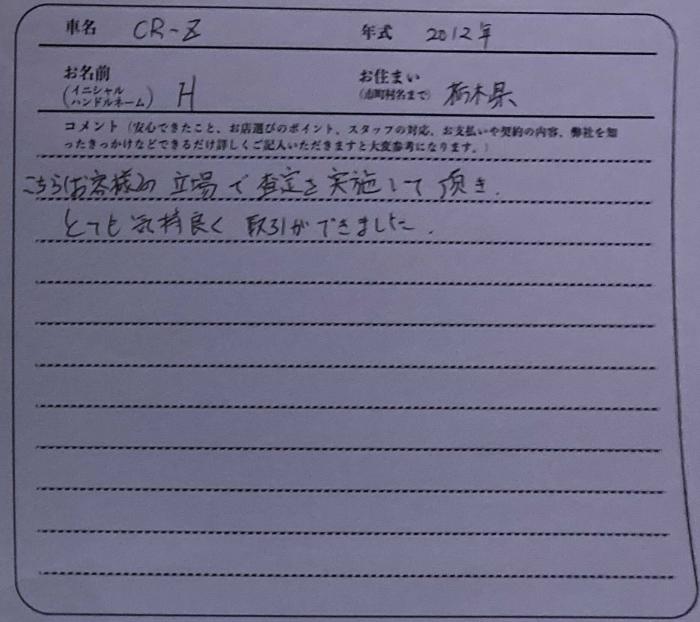 車名 CR-Z 年式 2012年
お名前 (イニシャル ハンドルネーム) H お住まい (市町村名まで) 栃木県
コメント（安心できたこと、お店選びのポイント、スタッフの対応、お支払いや契約の内容、弊社を知
ったきっかけなどできるだけ詳しくご記入いただきますと大変参考になります。）
こちらはお客様の立場で査定を実施して頂き、
とても気持良く取引ができました。